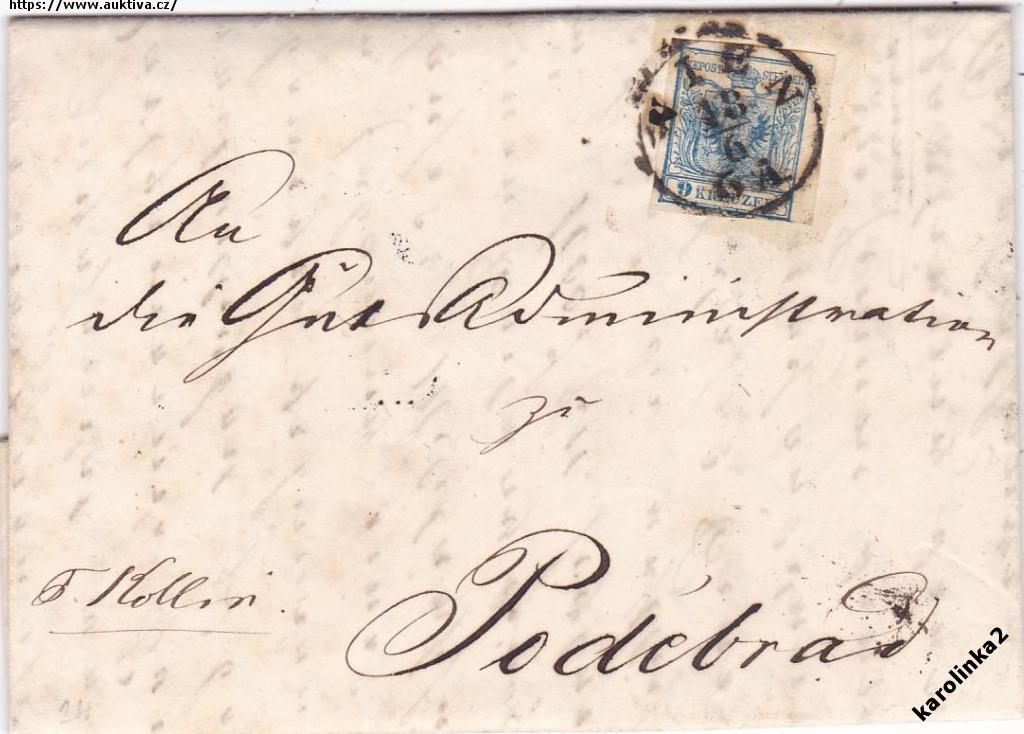 https://www.auktiva.cz/
WIEN
18
6
6 A
KKPOST STEMPEL
9 KREUZER
An
die Guts Administration
zu
Poděbrad
Kollin.
karolinka2